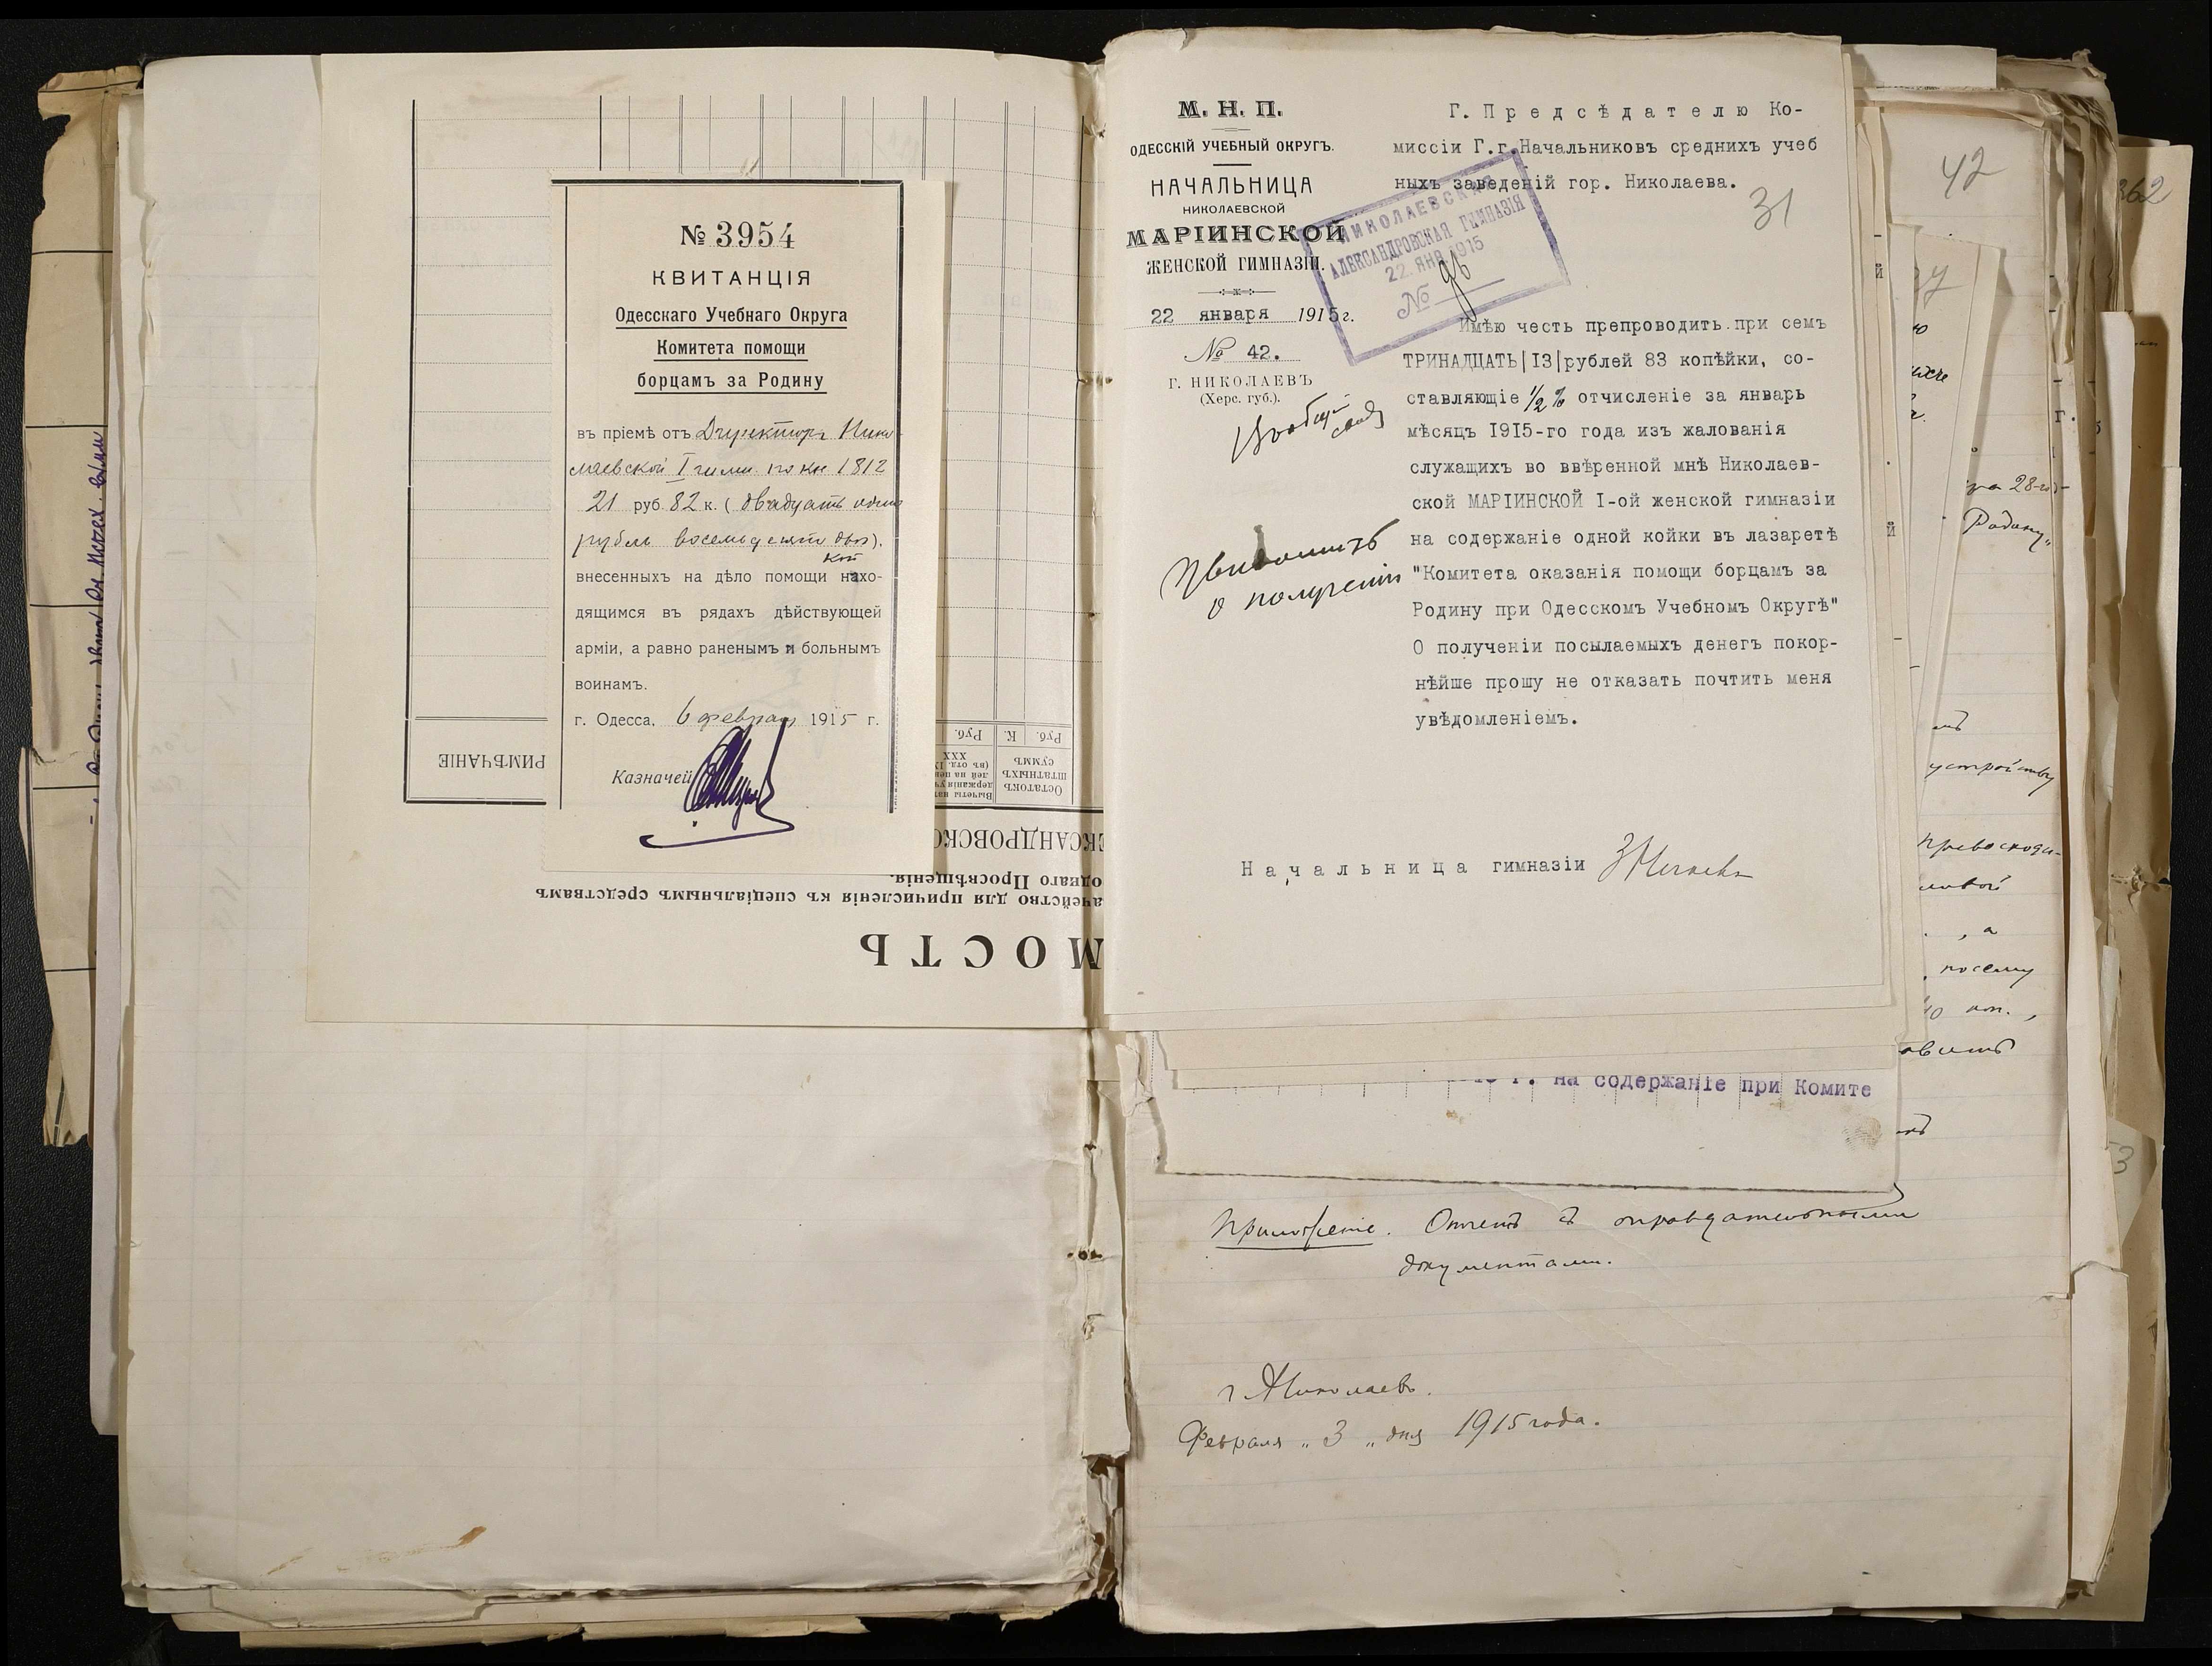 № 3954
КВИТАНЦІЯ
Одесскаго Учебнаго Округа
Комитета помощи
борцамъ за Родину
въ пріемѣ отъ Директора Нико-
лаевской I гимн. по кн 1812
21 руб. 82 к. (двадцать одинъ
рубль восемьдесятъ двѣ).
коп
внесенныхъ на дѣло помощи нахо-
дящимся въ рядахъ дѣйствующей
арміи, а равно раненымъ и больнымъ
воинамъ.
г. Одесса, 6 февраля 1915 г.
Казначей
РИМѢЧАНІЕ
Руб. К. Руб.
Остатокъ
штатныхъ
суммъ
КСАНДРОВСКО
однаго Просвѣщенія.
ачейство для причисленія къ спеціальнымъ средствамъ
МОСТЬ
М. Н. П.
ОДЕССКІЙ УЧЕБНЫЙ ОКРУГЪ.
НАЧАЛЬНИЦА
НИКОЛАЕВСКОЙ
МАРІИНСКОЙ
ЖЕНСКОЙ ГИМНАЗІИ.
22 января 1915 г.
№ 42.
Г. НИКОЛАЕВЪ
(Херс. губ.).
Увѣдомить
о полученіи
Г. Предсѣдателю Ко-
миссіи Г.г.Начальниковъ среднихъ учеб
ныхъ заведеній гор. Николаева.
31
НИКОЛАЕВСКАЯ
АЛЕКСАНДРОВСКАЯ ГИМНАЗІЯ
22. ЯНВ. 1915
№ 96
Имѣю честь препроводить при семъ
ТРИНАДЦАТЬ|I3|рублей 83 копѣйки, со-
ставляющіе ½% отчисленіе за январь
мѣсяцъ I9I5-го года изъ жалованія
служащихъ во ввѣренной мнѣ Николаев-
ской МАРІИНСКОЙ I-ой женской гимназіи
на содержаніе одной койки въ лазаретѣ
"Комитета оказанія помощи борцамъ за
Родину при Одесскомъ Учебномъ Округѣ"
О полученіи посылаемыхъ денегъ покор-
нѣйше прошу не отказать почтить меня
увѣдомленіемъ.
Начальница гимназіи
42
362
Родину"
устройству
, а
посему
на содержаніе при Комите
Приложеніе. Отчетъ съ оправдательными
документами.
г. Николаевъ.
Февраля "3" дня 1915 года.